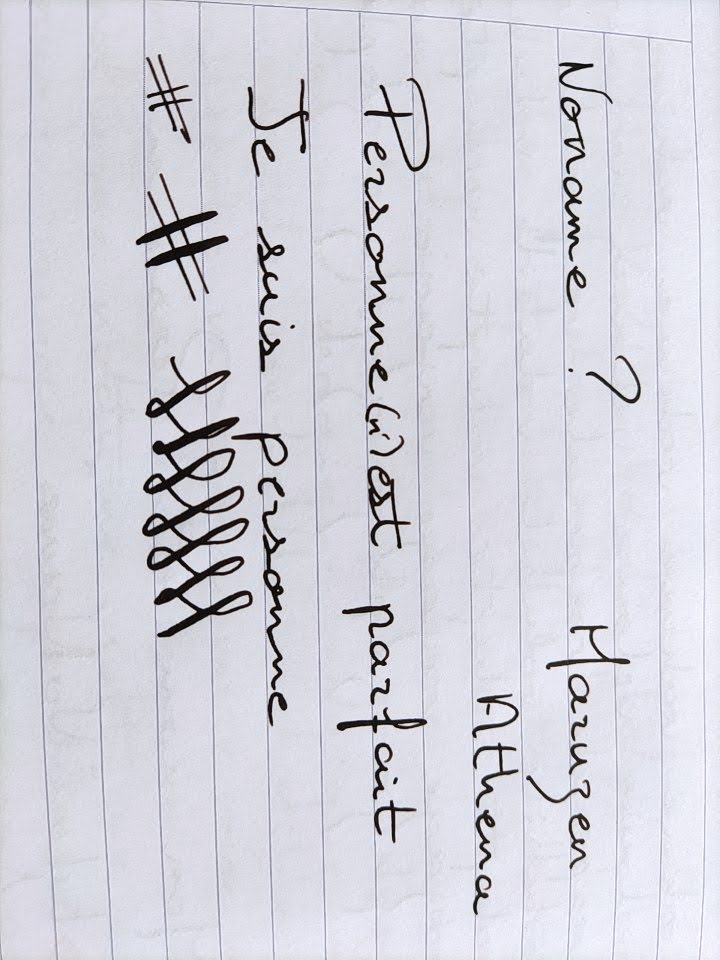 Noname ? Maruzen
Athena
Personne (n')est parfait
Je suis personne